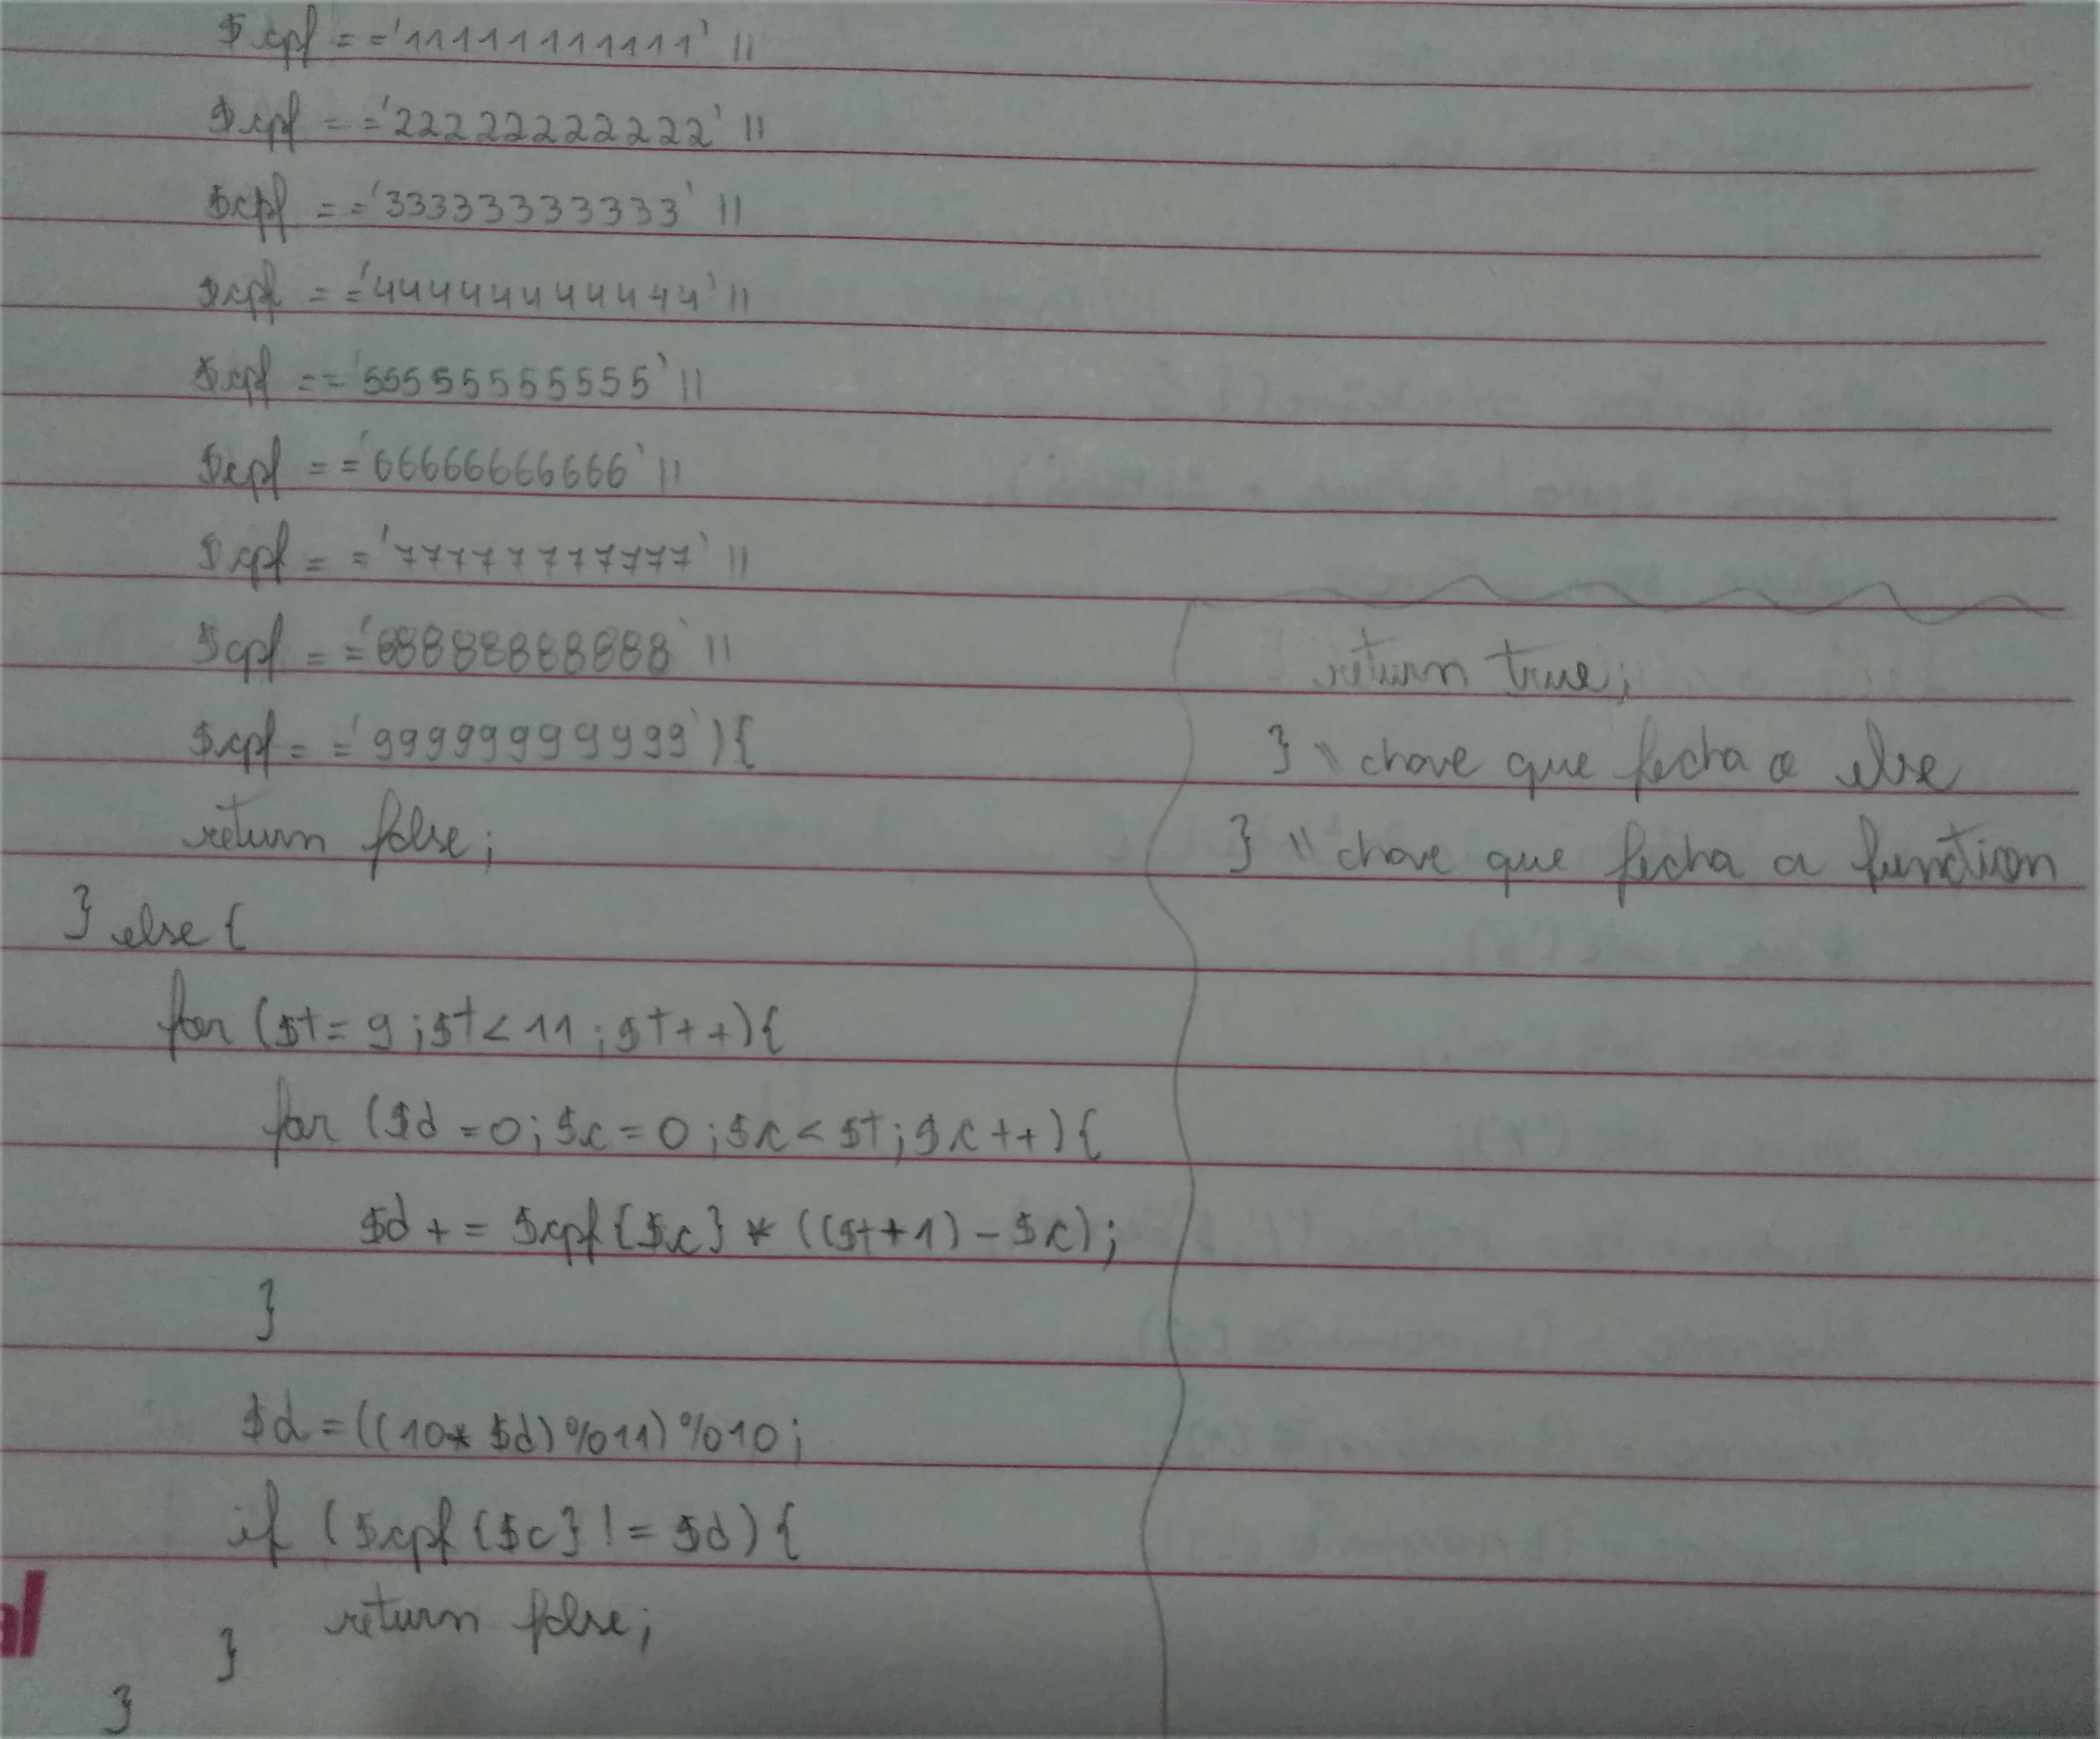 $cpf == '11111111111' ||
$cpf == '22222222222' ||
$cpf == '33333333333' ||
$cpf == '44444444444' ||
$cpf == '55555555555' ||
$cpf == '66666666666' ||
$cpf == '77777777777' ||
$cpf == '88888888888' ||
$cpf == '99999999999'){
return false;
} else {
for ($t = 9 ; $t < 11 ; $t++){
for ($d = 0 ; $c = 0 ; $c < $t ; $c++){
$d += $cpf{$c} * (($t+1) - $c);
}
$d = ((10* $d) %11) %10;
if ($cpf{$c} != $d) {
return false;
}
}
return true;
} \\ chave que fecha o else
} \\ chave que fecha a function
al